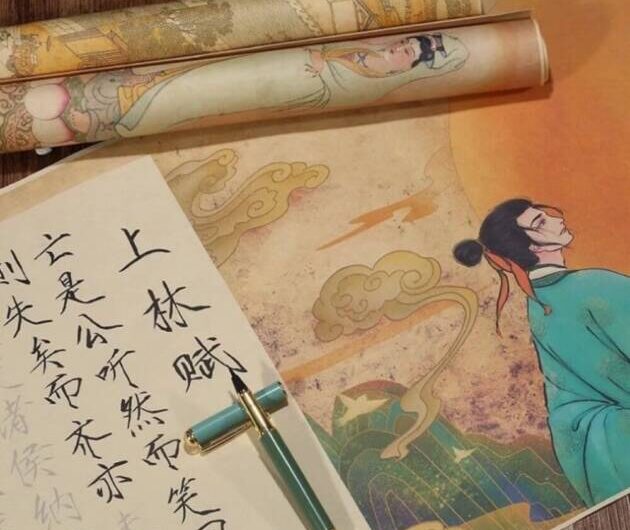 上林赋
亡是公听然而笑
则失矣而齐亦
诸侯纳